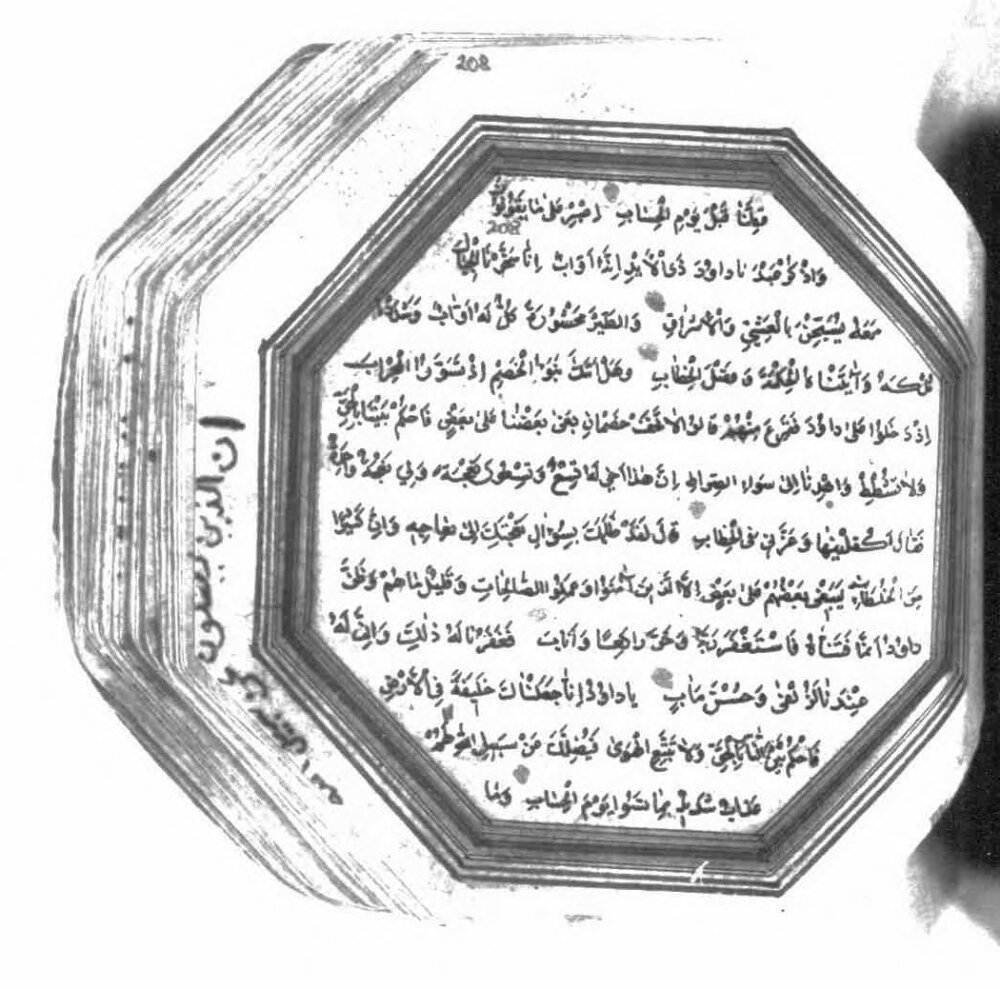 208
قِطَّنَا قَبْلَ يَوْمِ الْحِسَابِ اِصْبِرْ عَلٰى مَا يَقُولُونَ
208
وَاذْكُرْ عَبْدَنَا دَاوُدَ ذَا الْاَيْدِ اِنَّهُ اَوَّابٌ اِنَّا سَخَّرْنَا الْجِبَالَ
مَعَهُ يُسَبِّحْنَ بِالْعَشِيِّ وَالْاِشْرَاقِ وَالطَّيْرَ مَحْشُورَةً كُلٌّ لَهُ اَوَّابٌ وَشَدَدْنَا
مُلْكَهُ وَاٰتَيْنَاهُ الْحِكْمَةَ وَفَصْلَ الْخِطَابِ وَهَلْ اَتٰيكَ نَبَؤُا الْخَصْمِ اِذْ تَسَوَّرُوا الْمِحْرَابَ
اِذْ دَخَلُوا عَلٰى دَاوُدَ فَفَزِعَ مِنْهُمْ قَالُوا لَا تَخَفْ خَصْمَانِ بَغٰى بَعْضُنَا عَلٰى بَعْضٍ فَاحْكُمْ بَيْنَنَا بِالْحَقِّ
وَلَا تُشْطِطْ وَاهْدِنَا اِلٰى سَوَاءِ الصِّرَاطِ اِنَّ هٰذَا اَخِي لَهُ تِسْعٌ وَتِسْعُونَ نَعْجَةً وَلِيَ نَعْجَةٌ وَاحِدَةٌ
فَقَالَ اَكْفِلْنِيهَا وَعَزَّنِي فِي الْخِطَابِ قَالَ لَقَدْ ظَلَمَكَ بِسُؤَالِ نَعْجَتِكَ اِلٰى نِعَاجِهِ وَاِنَّ كَثِيرًا
مِنَ الْخُلَطَاءِ لَيَبْغِي بَعْضُهُمْ عَلٰى بَعْضٍ اِلَّا الَّذِينَ اٰمَنُوا وَعَمِلُوا الصَّالِحَاتِ وَقَلِيلٌ مَا هُمْ وَظَنَّ
دَاوُدُ اَنَّمَا فَتَنَّاهُ فَاسْتَغْفَرَ رَبَّهُ وَخَرَّ رَاكِعًا وَاَنَابَ فَغَفَرْنَا لَهُ ذٰلِكَ وَاِنَّ لَهُ
عِنْدَنَا لَزُلْفٰى وَحُسْنَ مَاٰبٍ يَا دَاوُدُ اِنَّا جَعَلْنَاكَ خَلِيفَةً فِي الْاَرْضِ
فَاحْكُمْ بَيْنَ النَّاسِ بِالْحَقِّ وَلَا تَتَّبِعِ الْهَوٰى فَيُضِلَّكَ عَنْ سَبِيلِ اللّٰهِ
عَذَابٌ شَدِيدٌ بِمَا نَسُوا يَوْمَ الْحِسَابِ وَمَا
ان الذين يضلون عن سبيل الله